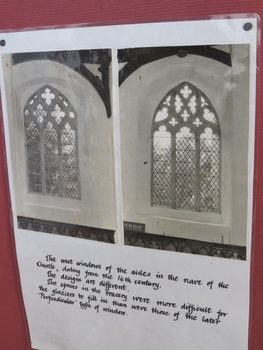 The west windows of the aisles in the nave of the
Church, dating from the 14th century.
The designs are different.
The spaces in the tracery were more difficult for
the glaziers to fill in than were those of the later
"Perpendicular" type of window.